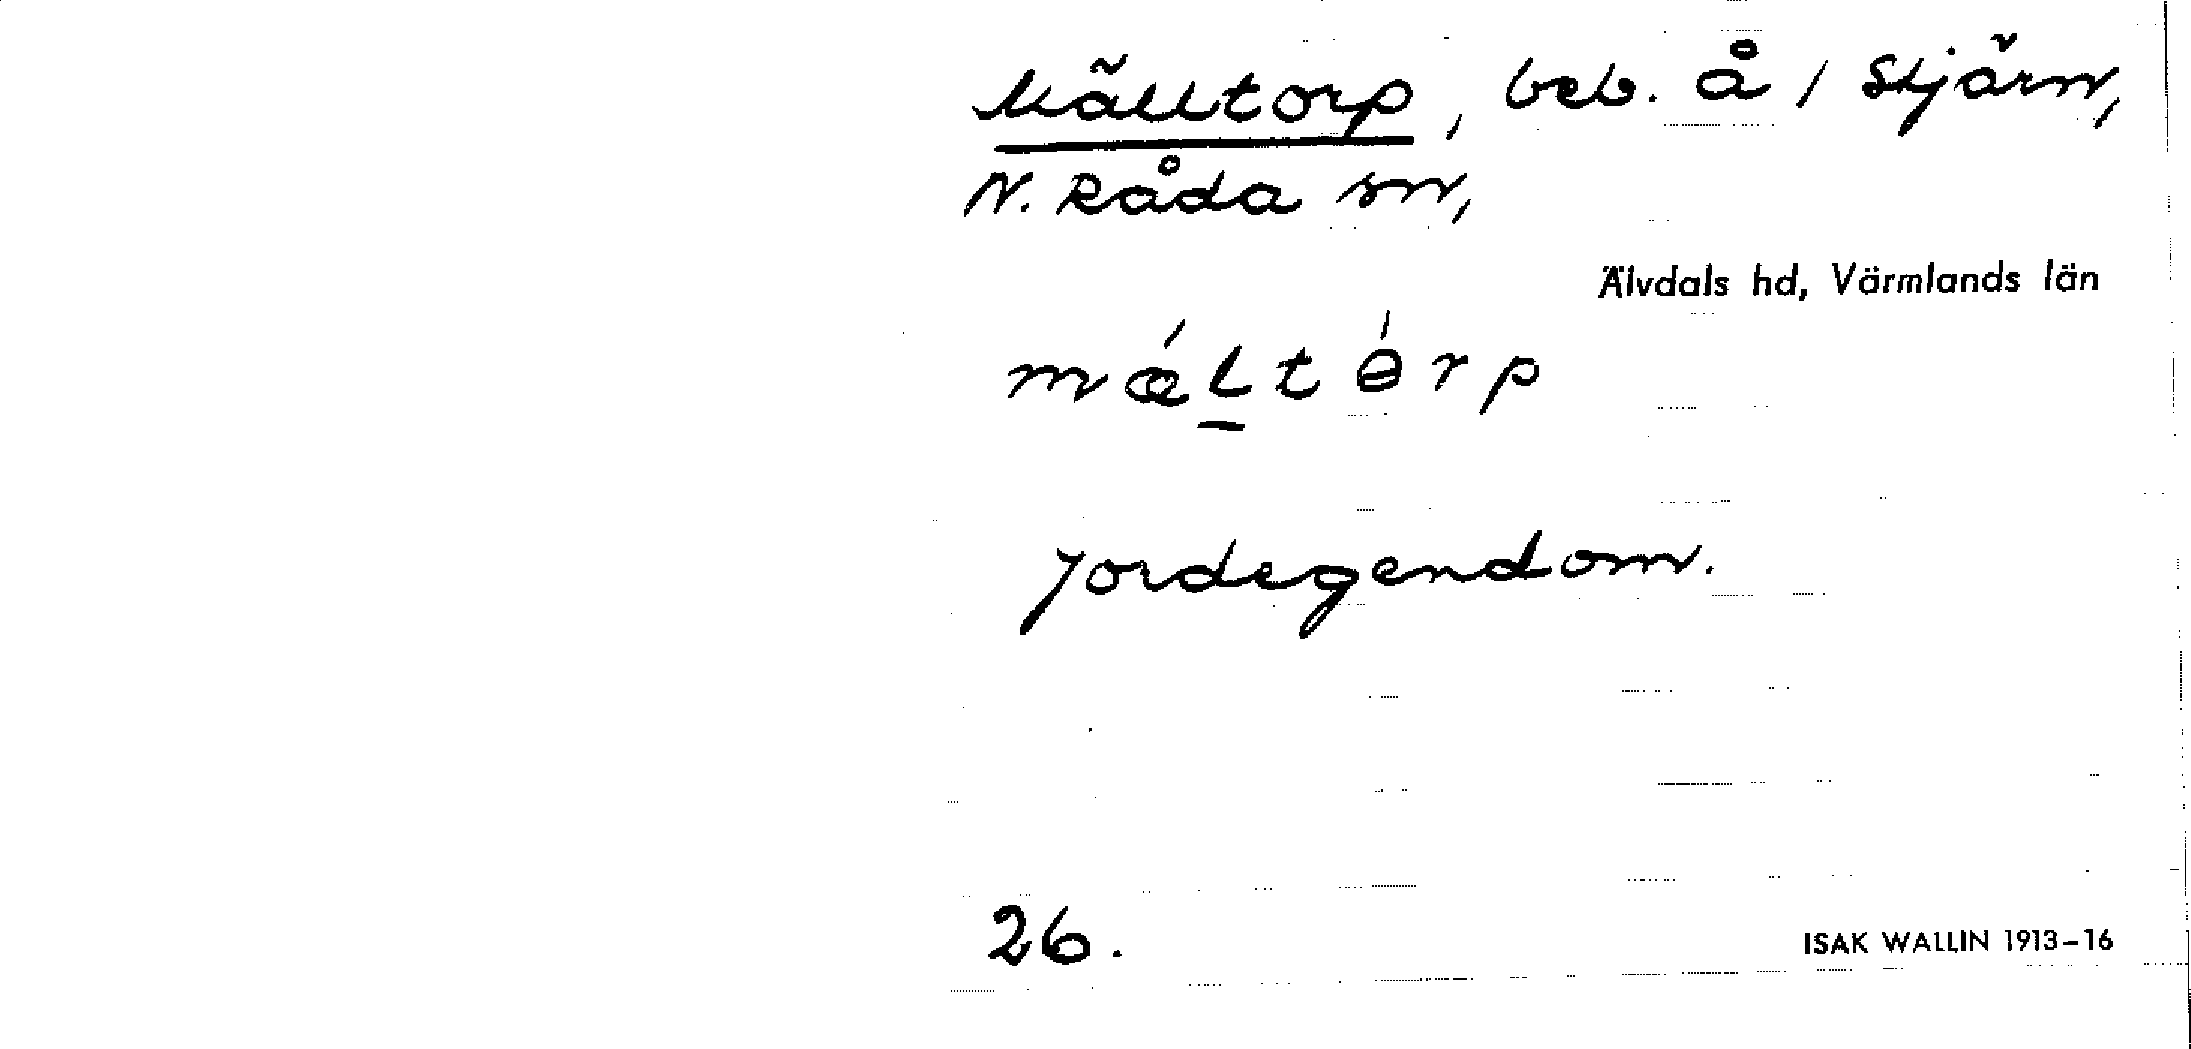 Mälltorp, beb. å / Stjärn,
N. Råda sn,
Älvdals hd, Värmlands län
mǽltɵ́rp
Jordegendom.
26.
ISAK WALLIN 1913-16